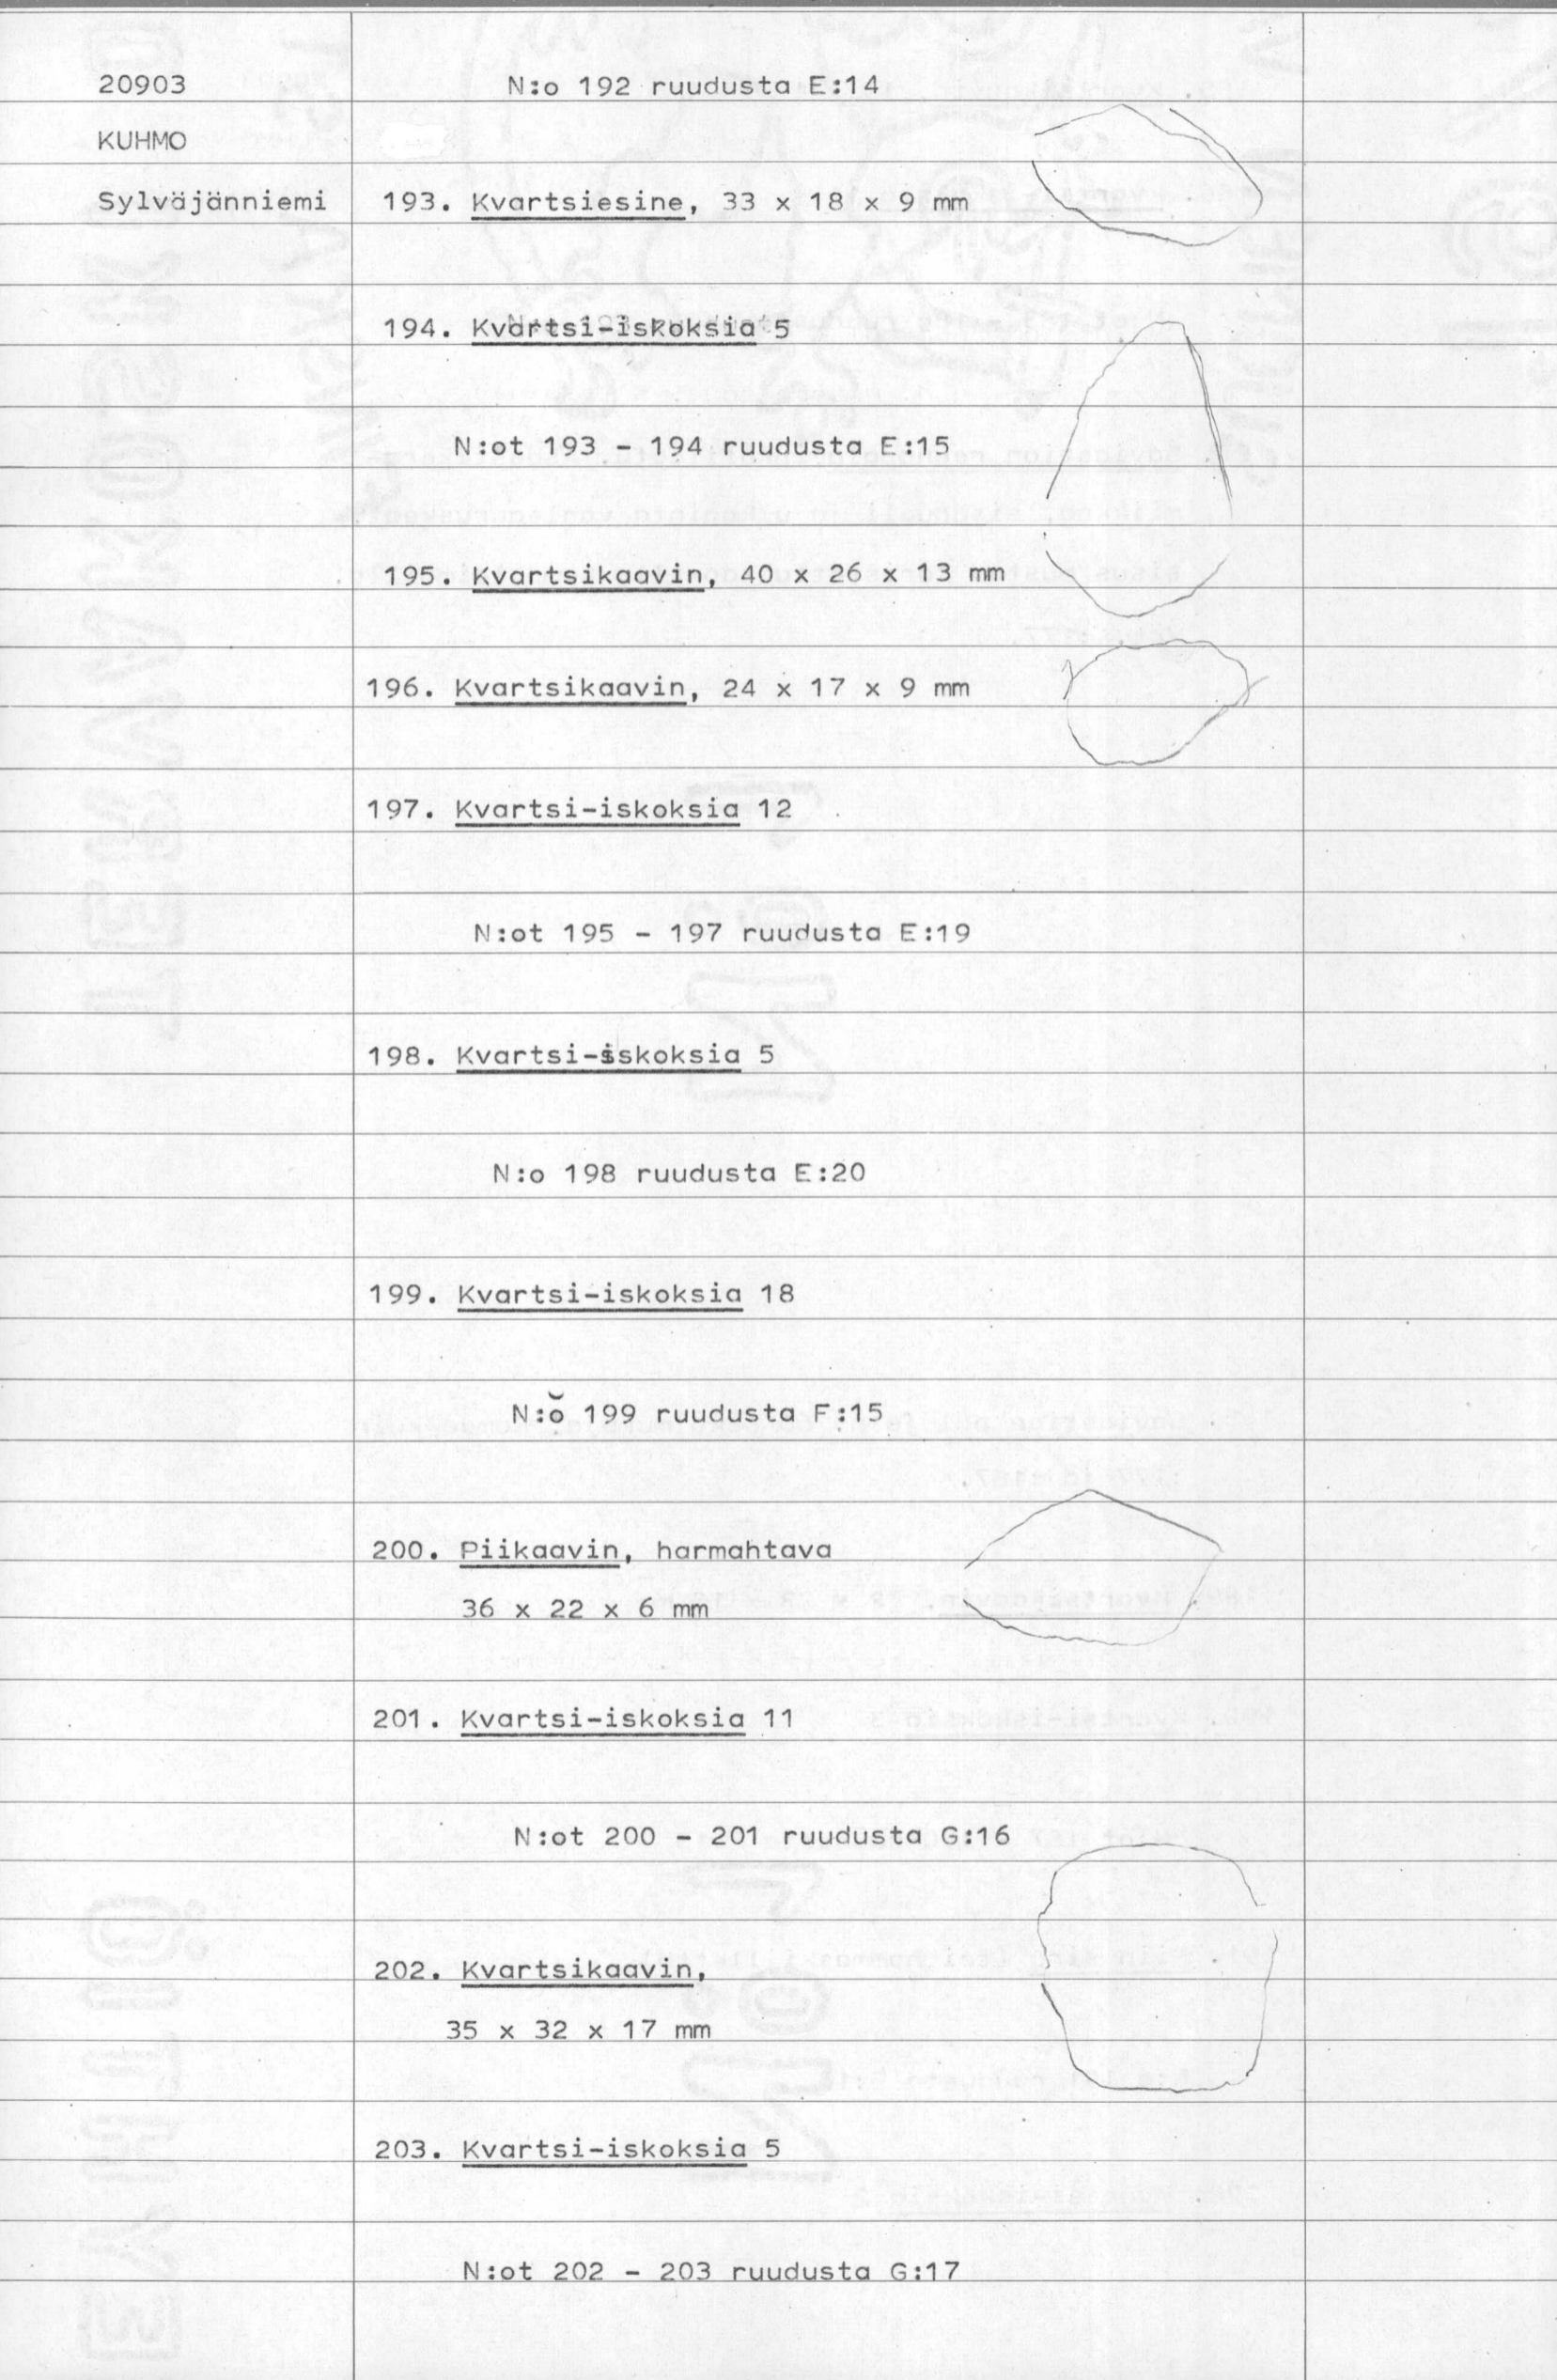 20903
N:o 192 ruudusta E:14
KUHMO
Sylväjänniemi
193. Kvartsiesine, 33 x 18 x 9 mm
194. Kvartsi-iskoksia 5
N:ot 193 - 194 ruudusta E:15
195. Kvartsikaavin, 40 x 26 x 13 mm
196. Kvartsikaavin, 24 x 17 x 9 mm
197. Kvartsi-iskoksia 12
N:ot 195 - 197 ruudusta E:19
198. Kvartsi-iskoksia 5
N:o 198 ruudusta E:20
199. Kvartsi-iskoksia 18
N:o 199 ruudusta F:15
200. Piikaavin, harmahtava
36 x 22 x 6 mm
201. Kvartsi-iskoksia 11
N:ot 200 - 201 ruudusta G:16
202. Kvartsikaavin,
35 x 32 x 17 mm
203. Kvartsi-iskoksia 5
N:ot 202 - 203 ruudusta G:17